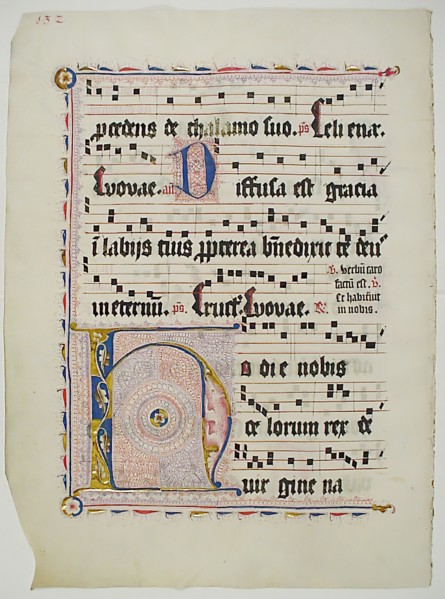 132
p̱cedens de thalamo suo. ps Celi enar.
Evovae. añ Diffusa est gracia
ī labijs tuis p̱pterea bñedixit te deu
in eternū. ps Eruct. Evovae. ℟
v̇. Verbū caro
factū est. v̇.
Et habitut
in nobis.
Hodie nobis
ce lorum rex de
uir gine na